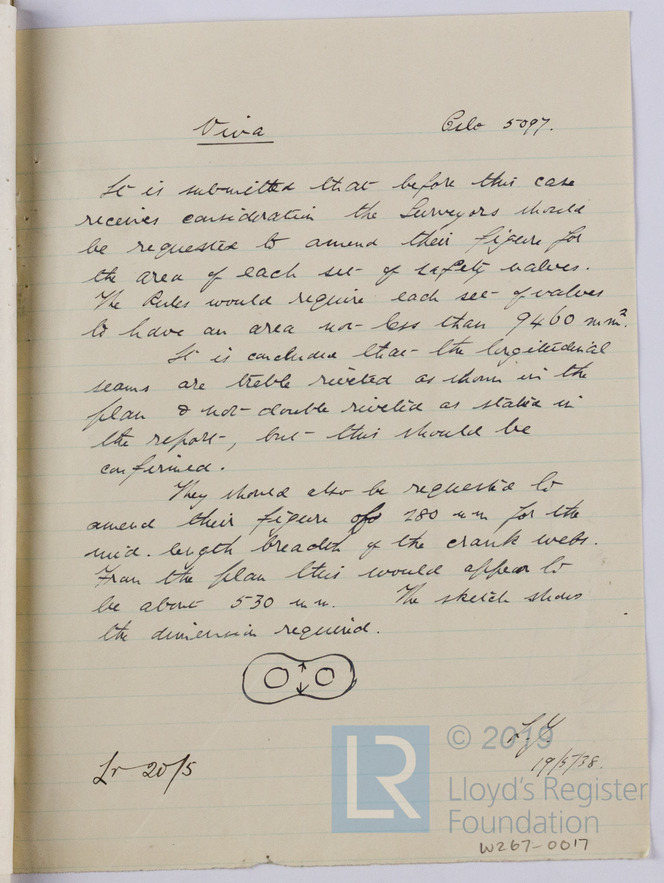 Viva
Oslo 5097.
It is submitted that before this case
receives consideration the Surveyors should
be requested to amend their figure for
the area of each set of safety valves.
The Rules would require each set of valves
to have an area not less than 9460 mm².
It is concluded that the longitudinal
seams are treble riveted as shown in the
plan & not double riveted as stated in
the report, but this should be
confirmed.
They should also be requested to
amend their figure of 280 mm for the
mid. length breadth of the crank webs.
From the plan this would appear to
be about 530 mm. The sketch shows
the dimension required.
19/5/38.
Lr 20/5
LR
© 2019
Lloyd's Register
Foundation
W267-0017